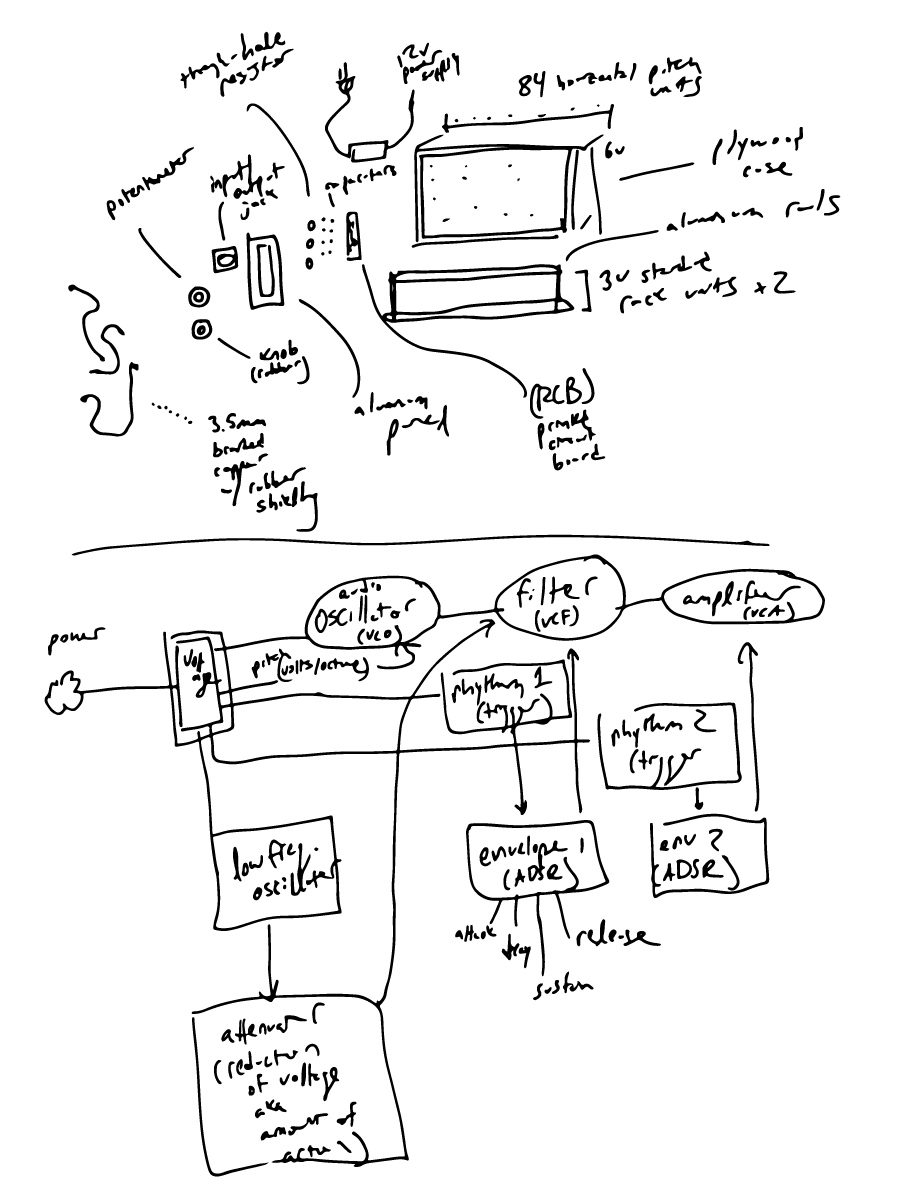 through-hole
resistor
12v
power
supply
84 horizontal pitch
units
6u
plywood
case
potentiometer
input/
output
jack
capacitors
aluminum rails
3u standard
rack units x2
knob
(rubber)
aluminum
panel
(PCB)
printed
circuit
board
3.5mm
braided
copper
w/ rubber
shielding
audio
oscillator
(VCO)
filter
(VCF)
amplifier
(VCA)
power
volt
age
pitch
(volts/octave)
rhythm 1
(trigger)
rhythm 2
(trigger
low freq.
oscillator
envelope 1
(ADSR)
env 2
(ADSR)
attack
decay
sustain
release
attenuator
(reduction
of voltage
aka
amount of